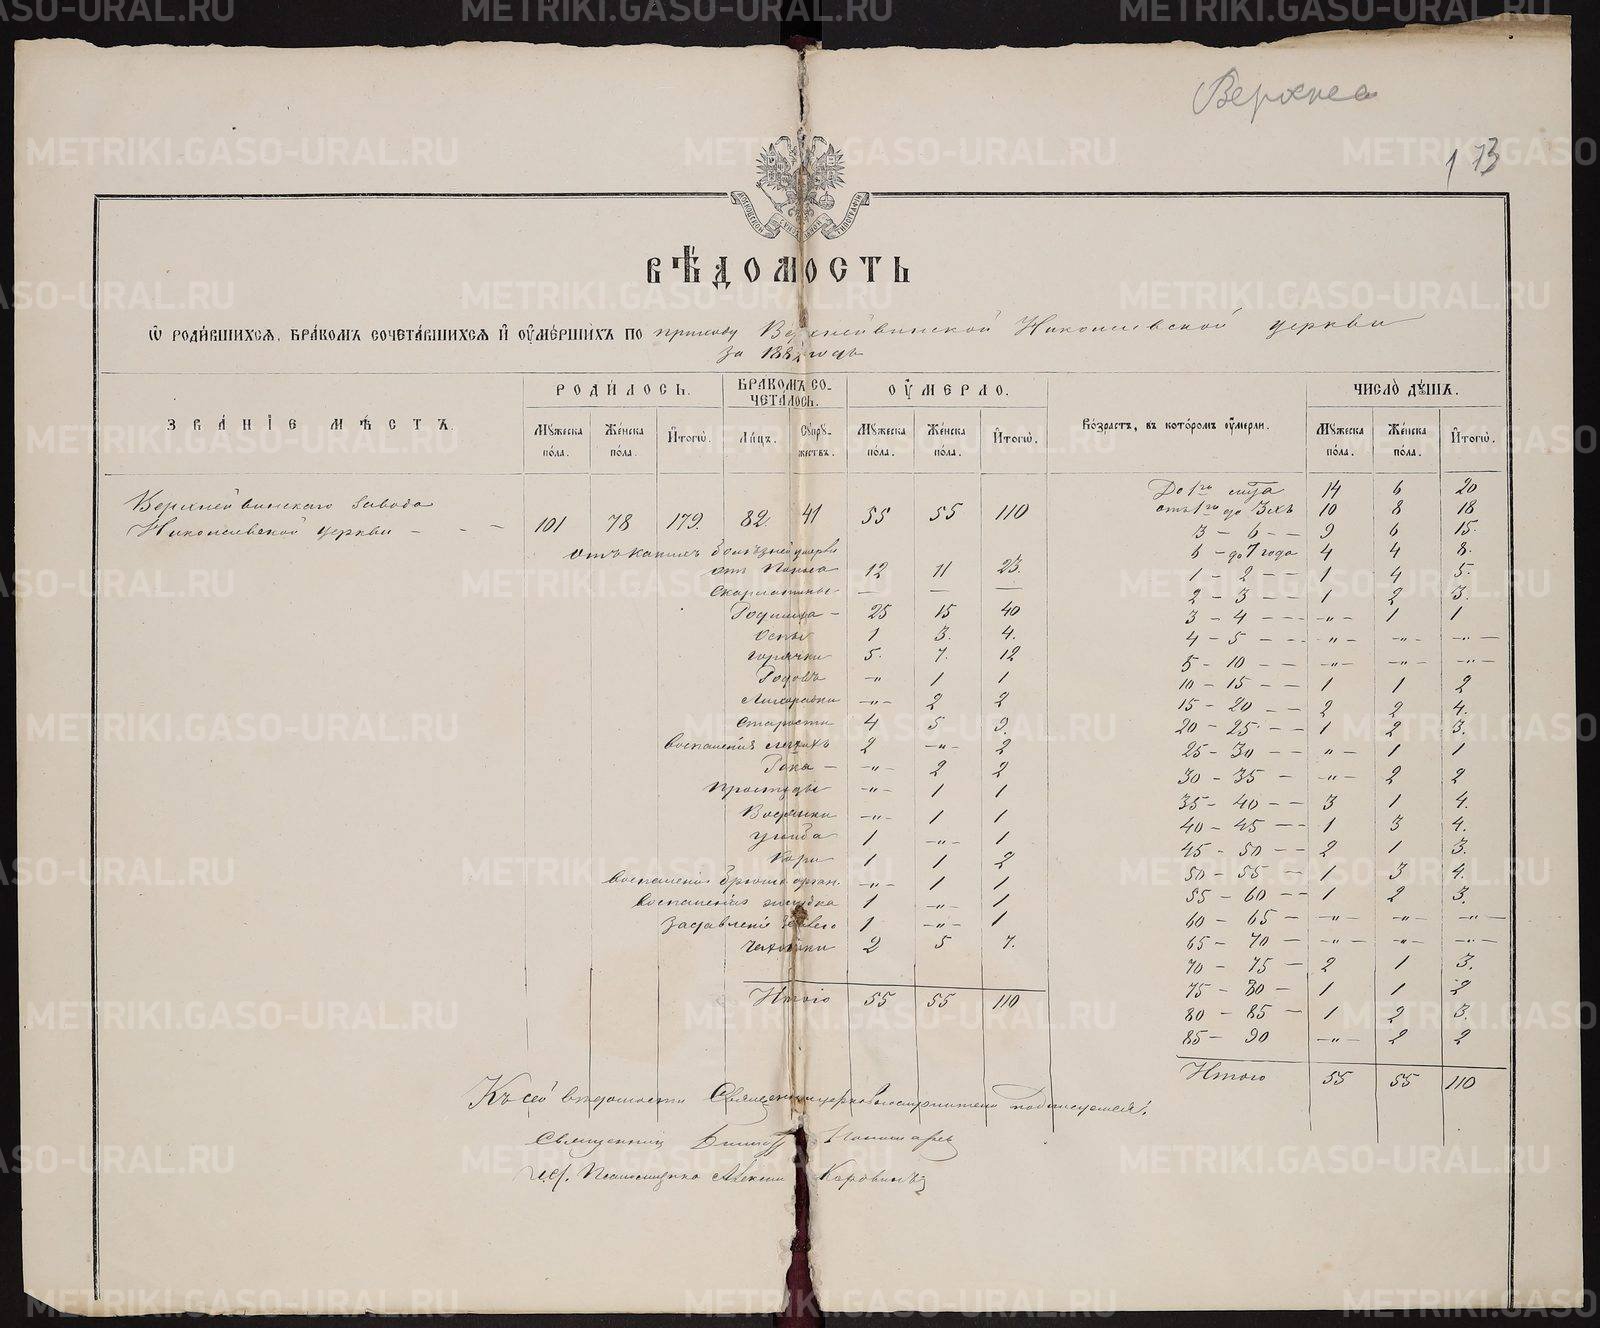 METRIKI.GASO-URAL.RU
Верхнеа
173
МОСКОВСКОЙ СѴНОДАЛЬНОЙ ТИПОГРАФІИ
ВѢДОМОСТЬ
Ѡ РОДИВШИХСЯ, БРАКОМЪ СОЧЕТАВШИХСЯ И ОУМЕРШИХЪ ПО приходу Верхнейвинской Николаевской церкви
за 1882 годъ
ЗВАНІЕ МѢСТЪ. РОДИЛОСЬ. БРАКОМЪ СОЧЕТАЛОСЬ. ОУМЕРЛО. Возрастъ, въ которомъ оумерли. ЧИСЛО ДУШЪ.
Мужеска пола. Женска пола. Итогѡ. Лицъ. Супружествъ. Мужеска пола. Женска пола. Итогѡ. Мужеска пола. Женска пола. Итогѡ.
Верхнейвинскаго завода
Николаевской церкви - - - 101 78 179. 82. 41 55 55 110
отъ какихъ болѣзней умерли
отъ Поноса 12 11 23.
Скарлатины — — —
Родимца - 25 15 40
Оспы 1 3. 4.
горячки 5. 7. 12
Родовъ -"- 1 1
Лихорадки -"- 2 2
Старости 4 5 9.
воспаленія легкихъ 2 -"- 2
Рака - -"- 2 2
Простуды -"- 1 1
Водянки -"- 1 1
ушиба 1 -"- 1
Кори 1 1 2
воспаленія брюшн. орган. -"- 1 1
воспаленія желудка 1 -"- 1
1 -"- 1
Чахотки 2 5 7.
Итого 55 55 110
До 1го года 14 6 20
отъ 1го до 3ехъ 10 8 18
3 - 6 - - 9 6 15.
6 - до 7 года 4 4 8.
1 - 2 - - 1 4 5.
2 - 3 - - 1 2 3.
3 - 4 - - -"- 1 1
4 - 5 - - -"- -"- -"-
5 - 10 - - -"- -"- -"-
10 - 15 - - 1 1 2
15 - 20 - - 2 2 4.
20 - 25 - - 1 2 3.
25 - 30 - - -"- 1 1
30 - 35 - -"- 2 2
35 - 40 - - 3 1 4.
40 - 45 - - 1 3 4.
45 - 50 - - 2 1 3.
50 - 55 - - 1 3 4.
55 - 60 - - 1 2 3.
60 - 65 - -"- -"- -"-
65 - 70 - -"- -"- -"-
70 - 75 - 2 1 3.
75 - 80 - 1 1 2
80 - 85 - 1 2 3.
85 - 90 -"- 2 2
Итого 55 55 110
Къ сей вѣдомости Священноцерковнослужители подписуемся:
Священникъ Пономаревъ
и.д. Псаломщика Алексій Коровинъ